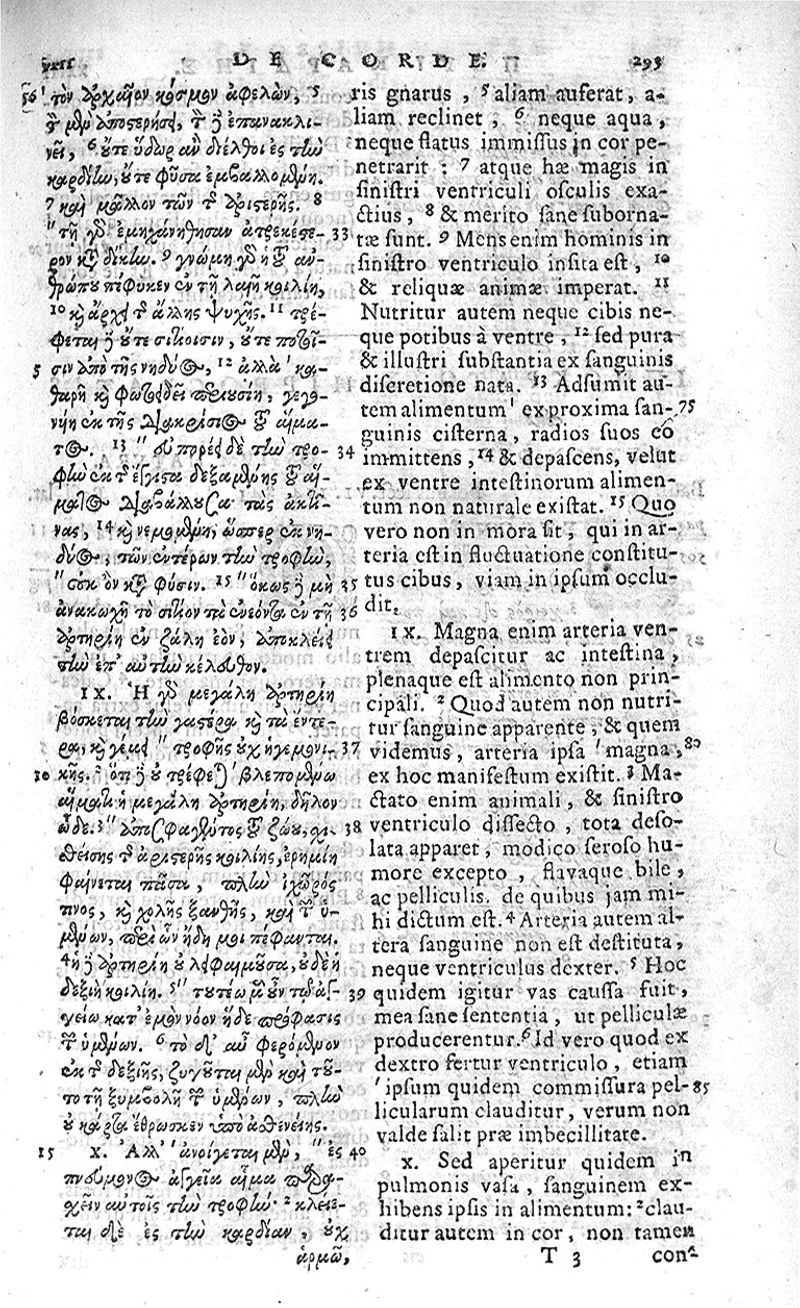 VIII DE CORDE. 293
τὸν ἀρχαῖον κόσμον ἀφελὼν, 5
τὰ μὲν ἀποστερήσει, τὰ δὲ ἐπανακλι-
νεῖ, 6 οὔτε ὕδωρ ἂν διέλθοι ἐς τὴν
καρδίην, οὔτε φῦσα ἐμβαλλομένη.
7 καὶ μᾶλλον τῶν τῆς ἀριστερῆς. 8
" τῇ γὰρ ἐμηχανήθησαν ἀτρεκέστε- 33
ρον κατὰ δίκην. 9 γνώμη γὰρ ἡ τοῦ ἀν-
θρώπου πέφυκεν ἐν τῇ λαιῇ κοιλίῃ,
10 καὶ ἄρχει τῆς ἄλλης ψυχῆς. 11 τρέ-
φεται δὲ οὔτε σιτίοισιν, οὔτε ποτοῖ-
5 σιν ἀπὸ τῆς νηδύος, 12 ἀλλὰ ' κα-
θαρῇ καὶ φωτοειδεῖ περιουσίῃ, γεγο-
νυίῃ ἐκ τῆς διακρίσιος τοῦ αἵμα-
τος. 13 " εὐπορέει δὲ τὴν τρο- 34
φὴν ἐκ τῆς ἔγγιστα δεξαμενῆς τοῦ αἵ-
ματος διαβάλλουσα τὰς ἀκτῖ-
νας, 14 καὶ νεμομένη, ὥσπερ ἐκ νη-
δύος, τῶν ἐντέρων τὴν τροφὴν,
" οὐκ ὂν κατὰ φύσιν. 15 " ὅκως δὲ μὴ 35
ἀνακωχῇ τὸ σιτίον τὰ ἐνεόντα ἐν τῇ 36
ἀρτηρίῃ ἐν ζάλῃ ἐὸν, ἀποκλείει
τὴν ἐπ' αὐτὴν κέλευθον.
IX. Ἡ γὰρ μεγάλη ἀρτηρίη
βόσκεται τὴν γαστέρα καὶ τὰ ἔντε-
ρα, καὶ γέμει " τροφῆς οὐχ ἡγεμονι- 37
10 κῆς. 2 ὅτι δὲ οὐ τρέφεται ' βλεπομένῳ
αἵματι ἡ μεγάλη ἀρτηρίη, δῆλον
ὧδε. 3 " ἀποσφαγέντος τοῦ ζώου, σχι- 38
σθείσης τῆς ἀριστερῆς κοιλίης, ἐρημίη
φαίνεται πᾶσα, πλὴν ἰχῶρός
τινος, καὶ χολῆς ξανθῆς, καὶ τῶν ὑ-
μένων, περὶ ὧν ἤδη μοι πέφανται.
4 ἡ δὲ ἀρτηρίη οὐ λειφαιμοῦσα, οὐδὲ ἡ
δεξιὴ κοιλίη. 5 " τουτέῳ μὲν οὖν τῷ ἀγ- 39
γείῳ κατ' ἐμὸν νόον ἥδε πρόφασις
τῶν ὑμένων. 6 τὸ δ' αὖ φερόμενον
ἐκ τῆς δεξιῆς, ζυγοῦται μὲν καὶ τοῦ-
το τῇ ξυμβολῇ τῶν ὑμένων, πλὴν
οὐ κάρτα ἔθρωσκεν ὑπὸ ἀσθενείης.
15 X. Ἀλλ' ἀνοίγεται μὲν, " ἐς 40
πνεύμονος ἀγγεῖα αἷμα παρα-
σχεῖν αὐτοῖς τὴν τροφήν· 2 κλείε-
ται δὲ ἐς τὴν καρδίαν, οὐχ
ἁρμῷ,
ris gnarus, 5 aliam auferat, a-
liam reclinet, 6 neque aqua,
neque flatus immissus in cor pe-
netrarit: 7 atque hæ magis in
sinistri ventriculi osculis exa-
ctius, 8 & merito sane suborna-
tæ sunt. 9 Mens enim hominis in
sinistro ventriculo insita est, 10
& reliquæ animæ imperat. 11
Nutritur autem neque cibis ne-
que potibus à ventre, 12 sed pura
& illustri substantia ex sanguinis
discretione nata. 13 Adsumit au-
tem alimentum ' ex proxima san- 75
guinis cisterna, radios suos eò
immittens, 14 & depascens, velut
ex ventre intestinorum alimen-
tum non naturale existat. 15 Quo
vero non in mora sit, qui in ar-
teria est in fluctuatione constitu-
tus cibus, viam in ipsum occlu-
dit.
IX. Magna enim arteria ven-
trem depascitur ac intestina,
plenaque est alimento non prin-
cipali. 2 Quod autem non nutri-
tur sanguine apparente, & quem
videmus, arteria ipsa ' magna, 80
ex hoc manifestum existit. 3 Ma-
ctato enim animali, & sinistro
ventriculo dissecto, tota deso-
lata apparet, modico seroso hu-
more excepto, flavaque bile,
ac pelliculis. de quibus jam mi-
hi dictum est. 4 Arteria autem al-
tera sanguine non est destituta,
neque ventriculus dexter. 5 Hoc
quidem igitur vas caussa fuit,
mea sane sententia, ut pelliculæ
producerentur. 6 Id vero quod ex
dextro fertur ventriculo, etiam
' ipsum quidem commissura pel- 85
licularum clauditur, verum non
valde salit præ imbecillitate.
X. Sed aperitur quidem in
pulmonis vasa, sanguinem ex-
hibens ipsis in alimentum: 2 clau-
ditur autem in cor, non tamen
T 3 con-